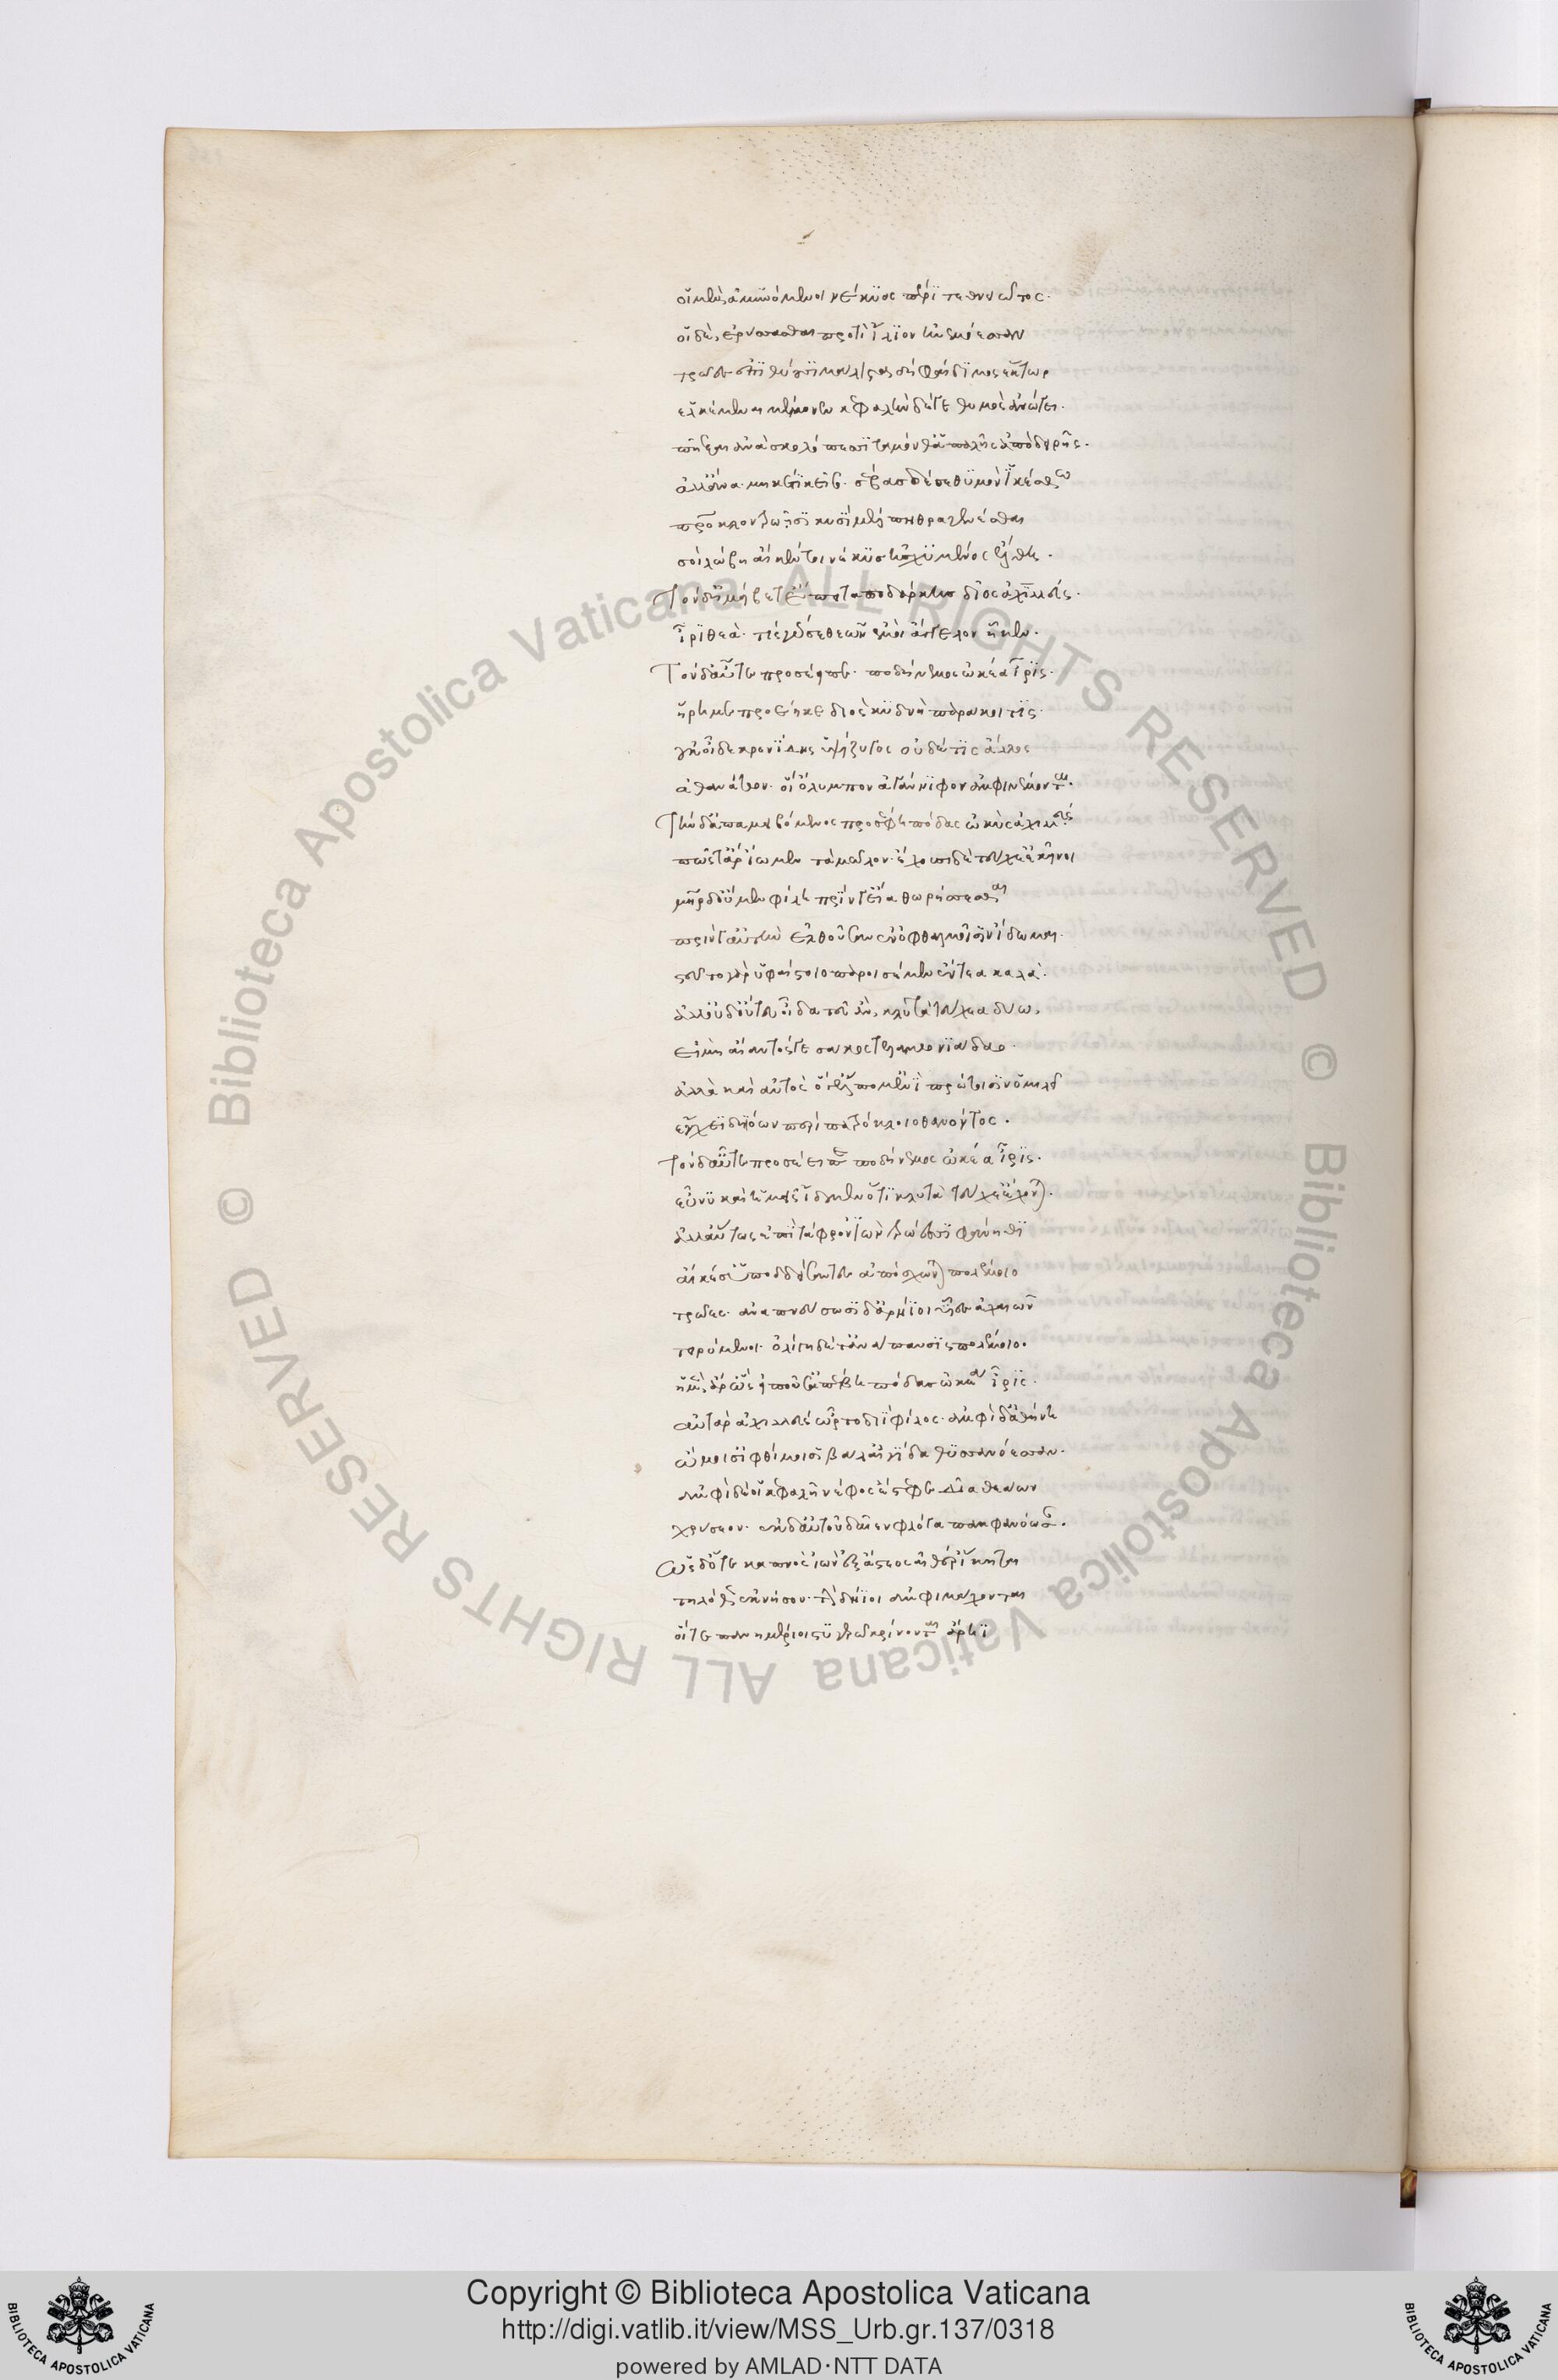 οἱ μὲν ἀμυνόμενοι νέκυος πέρι τεθνηῶτος·
οἱ δὲ ἐρύσσασθαι προτὶ ἴλιον ἠνεμόεσσαν
τρῶες ἐπιθύουσι· μάλιστα δὲ φαίδιμος ἕκτωρ
ἑλκέμεναι μέμονεν κεφαλὴν δέ ἑ θυμὸς ἀνώγει.
πῆξαι ἀνὰ σκολόπεσσι ταμόνθ' ἁπαλῆς ἀπὸ δειρῆς.
ἀλλ' ἄνα μηδ' ἔτι κεῖσο· σέβας δέ σε θυμὸν ἱκέσθω
πάτροκλον τρωῇσι κυσὶ μέλπηθρα γενέσθαι
σοὶ λώβη αἴ κέν τι νέκυς ᾐσχυμμένος ἔλθῃ.
Τὸν δ' ἠμείβετ' ἔπειτα ποδάρκης δῖος ἀχιλλεύς.
ἶρι θεά· τίς γάρ σε θεῶν ἐμοὶ ἄγγελον ἧκεν.
Τὸν δ' αὖτε προσέειπε ποδήνεμος ὠκέα ἶρις.
ἥρη με προέηκε διὸς κυδρὴ παράκοιτις·
οὐδ' οἶδε κρονίδης ὑψίζυγος οὐδέ τις ἄλλος
ἀθανάτων· οἳ ὄλυμπον ἀγάννιφον ἀμφινέμονται.
Τὴν δ' ἀπαμειβόμενος προσέφη πόδας ὠκὺς ἀχιλλεύς
πῶς τ' ἄρ' ἴω μετὰ μῶλον· ἔχουσι δὲ τεύχε' ἐκεῖνοι
μήτηρ δ' οὔ με φίλη πρίν γ' εἴα θωρήσσεσθαι
πρίν γ' αὐτὴν ἐλθοῦσαν ἐν ὀφθαλμοῖσιν ἴδωμαι.
στεῦτο γὰρ ἡφαίστοιο πάροισέμεν ἔντεα καλά.
ἄλλου δ' οὔ τευ οἶδα τεῦ ἂν κλυτὰ τεύχεα δύω,
εἰ μὴ αἴαντός γε σάκος τελαμωνιάδαο.
ἀλλὰ καὶ αὐτὸς ὅ γ' ἔλπομ' ἐνὶ πρώτοισιν ὁμιλεῖ
ἔγχεϊ δηϊόων περὶ πατρόκλοιο θανόντος.
Τὸν δ' αὖτε προσέειπε ποδήνεμος ὠκέα ἶρις.
εὖ νυ καὶ ἡμεῖς ἴδμεν ὅτι κλυτὰ τεύχε' ἔχονται.
ἀλλ' αὔτως ἐπὶ τάφρον ἰὼν τρώεσσι φάνηθι
αἴ κέ σ' ὑποδδείσαντες ἀπόσχωνται πολέμοιο
τρῶες· ἀναπνεύσωσι δ' ἀρήϊοι υἷες ἀχαιῶν
τειρόμενοι· ὀλίγη δέ τ' ἀνάπαυσις πολέμοιο.
ἡ μὲν ἄρ' ὣς εἰποῦσ' ἀπέβη πόδας ὠκέα ἶρις.
αὐτὰρ ἀχιλλεὺς ὦρτο διῒ φίλος· ἀμφὶ δ' ἀθήνη
ὤμοις ἰφθίμοισι βάλ' αἰγίδα θυσσανόεσσαν.
ἀμφὶ δέ οἱ κεφαλῇ νέφος ἔστεφε δῖα θεάων
χρύσεον· ἐκ δ' αὐτοῦ δαῖεν φλόγα παμφανόωσαν.
Ὡς δ' ὅτε καπνὸς ἰὼν ἐξ ἄστεος αἰθέρ' ἵκηται
τηλόθεν ἐκ νήσου· τὴν δήϊοι ἀμφιμάχονται
οἵ τε πανημέριοι στυγερῷ κρίνονται ἄρηϊ
Copyright © Biblioteca Apostolica Vaticana
http://digi.vatlib.it/view/MSS_Urb.gr.137/0318
powered by AMLAD·NTT DATA